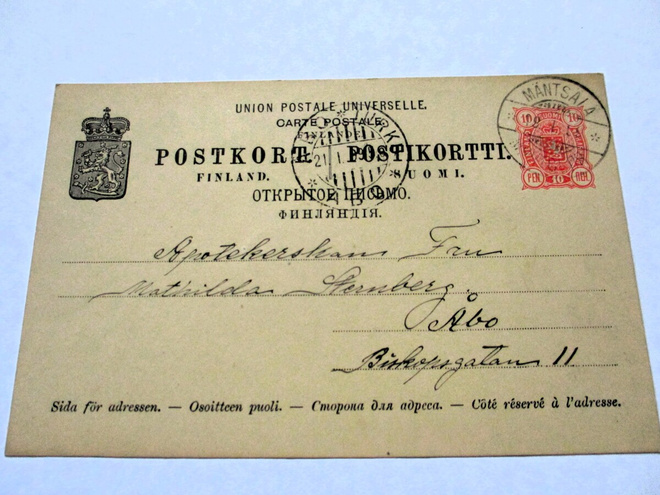 UNION POSTALE UNIVERSELLE.
CARTE POSTALE
FINLANDE
POSTKORT. POSTIKORTTI.
FINLAND. SUOMI.
ОТКРЫТОЕ ПИСЬМО.
ФИНЛЯНДІЯ.
MÄNTSÄLÄ
10 10
PEN 10 PEN
21 1
Fru
Mathilda Sternberg.
Åbo
Biskopsgatan 11
Sida för adressen. — Osoitteen puoli. — Сторона для адреса. — Côté réservé à l'adresse.